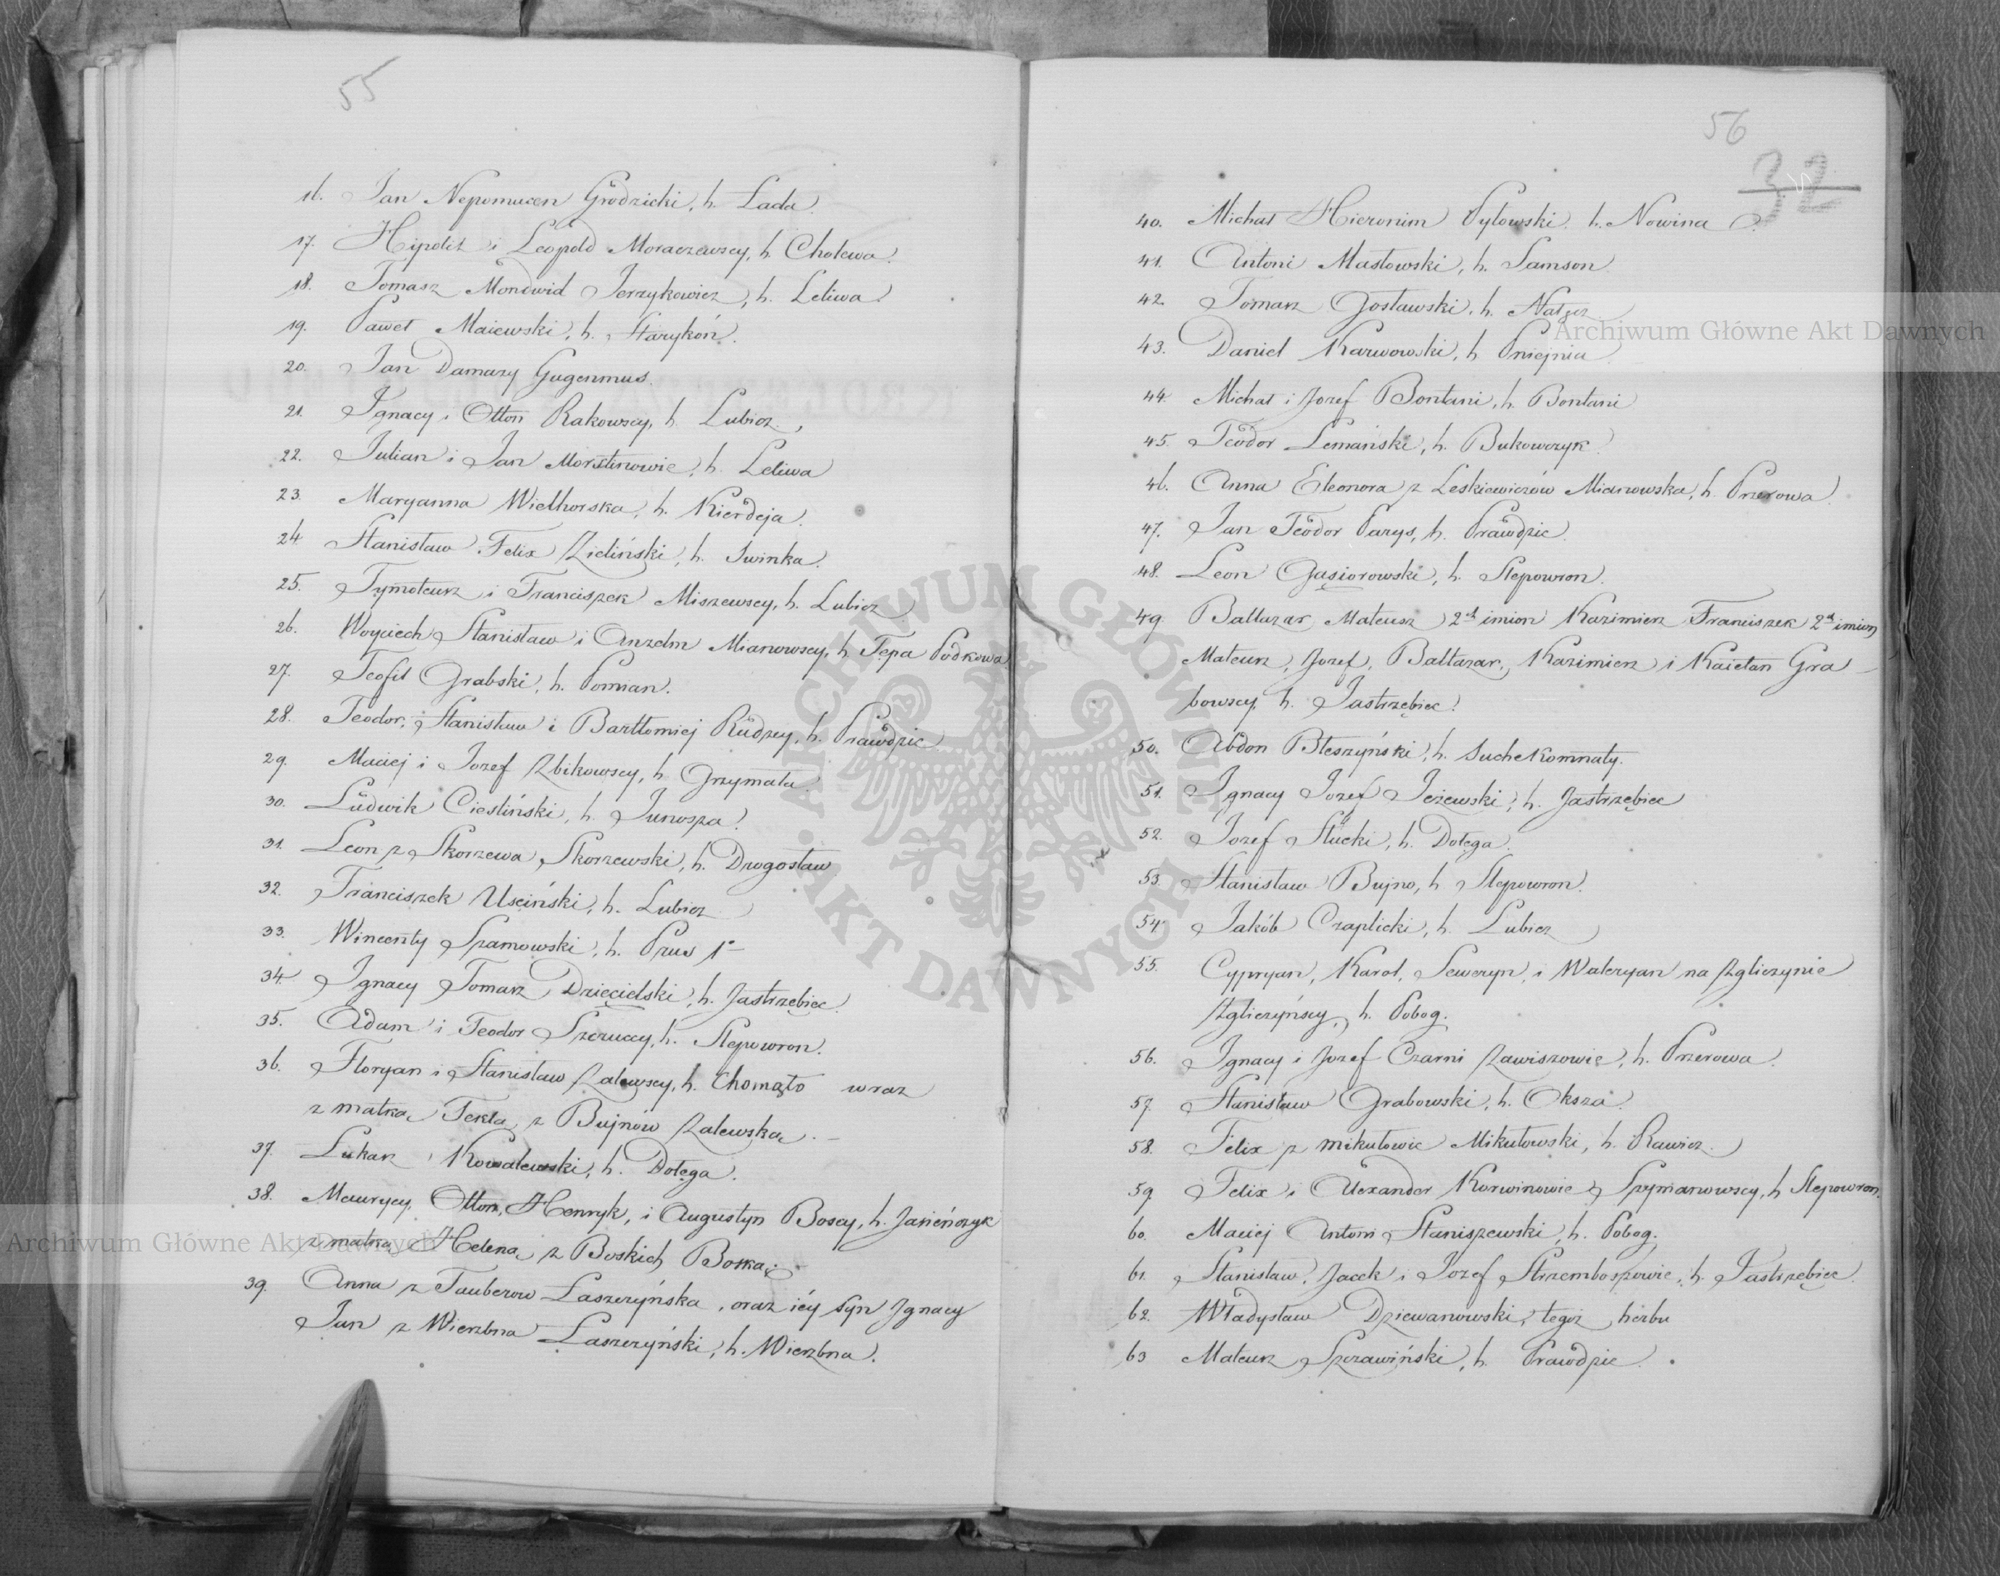 55
16. Jan Nepomucen Grodzicki, h. Łada.
17. Hipolit i Leopold Moraczewscy, h. Cholewa.
18. Tomasz Mondwid Jerzykowicz, h. Leliwa.
19. Paweł Maiewski, h. Starykoń.
20. Jan Damazy Gugenmus.
21. Ignacy i Otton Rakowscy, h. Lubicz.
22. Julian i Jan Morsztinowie, h. Leliwa
23. Maryanna Wielhorska, h. Kierdeja.
24. Stanisław Felix Zieliński, h. Swinka.
25. Tymoteusz i Franciszek Miszewscy, h. Lubicz
26. Woyciech Stanisław i Anzelm Mianowscy, h. Tępa Podkowa
27. Teofil Grabski, h. Pomian.
28. Teodor, Stanisław i Bartłomiej Rudzcy, h. Prawdzic
29. Maciej i Jozef Zbikowscy, h. Grzymała.
30. Ludwik Ciesliński, h. Junosza.
31. Leon z Skorzewa Skorzewski, h. Drogosław
32. Franciszek Usciński, h. Lubicz
33. Wincenty Szamowski, h. Prus 1º
34. Ignacy Tomasz Dzięcielski, h. Jastrzębiec.
35. Adam i Teodor Szcruccy, h. Slepowron.
36. Floryan i Stanisław Zalewscy, h. Chomąto wraz
z matką Teklą z Bujnów Zalewską. –
37. Łukasz Kowalewski, h. Dołęga.
38. Maurycy, Otton, Henryk, i Augustyn Boscy, h. Jasieńczyk
z matką Heleną z Boskich Boską.
39. Anna z Tauberow Łaszczyńska, oraz iéy syn Ignacy
Jan z Wierzbna Łaszczyński, h. Wierzbna.
56
32
40. Michał Hieronim Pytowski h. Nowina
41. Antoni Masłowski, h. Samson.
42. Tomasz Gosławski, h. Nałęcz
43. Daniel Karwowski, h. Pniejnia
44. Michał i Jozef Bontani, h. Bontani
45. Teodor Lemański, h. Bukowczyk.
46. Anna Eleonora z Leskiewiczów Mianowska, h. Przerowa.
47. Jan Teodor Parys, h. Prawdzic.
48. Leon Gąsiorowski, h. Slepowron.
49. Baltazar Mateusz 2ch imion Kazimierz Franciszek 2ch imion
Mateusz, Jozef, Baltazar, Kazimierz i Kaietan Gra
bowscy, h. Jastrzębiec.
50. Abdon Błeszyński, h. Suchekomnaty.
51. Ignacy Jozef Jeżewski, h. Jastrzębiec
52. Jozef Słucki, h. Dołęga.
53. Stanisław Bujno, h. Slepowron.
54. Jakób Czaplicki, h. Lubicz
55. Cypryan, Karol, Seweryn, i Waleryan na Zgliczynie
Zgliczyńscy, h. Pobog.
56. Ignacy i Jozef Czarni Zawiszowie, h. Przerowa.
57. Stanisław Grabowski, h. Oksza.
58. Felix z Mikułowic Mikułowski, h. Rawicz.
59. Felix i Alexander Korwinowie Szymanowscy, h. Slepowron.
60. Maciej Antoni Staniszewski, h. Pobog.
61. Stanisław, Jacek i Jozef Strzemboszowie, h. Jastrzębiec.
62. Władysław Dziewanowski, tegoż herbu
63. Mateusz Szczawiński, h. Prawdzic.
Archiwum Główne Akt Dawnych
Archiwum Główne Akt Dawnych
ARCHIWUM GŁÓWNE · AKT DAWNYCH ·